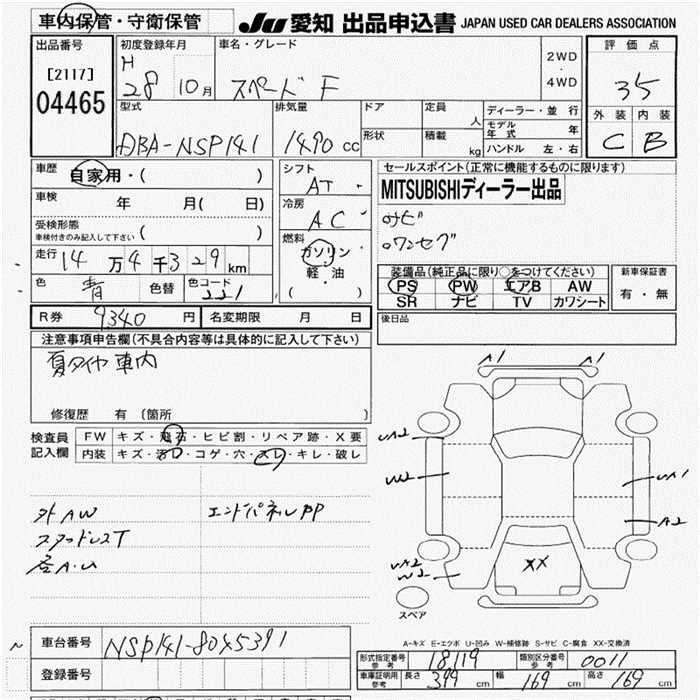 車内保管・守衛保管 JU 愛知 出品申込書 JAPAN USED CAR DEALERS ASSOCIATION
出品番号 初度登録年月 車名・グレード 2WD・4WD 評価点
[2117] H 28 10月 スペード F 35
04465 外装 内装
型式 排気量 ドア 定員 人 ディーラー・並行
DBA-NSP141 1490 cc 形状 積載 kg モデル年式 年 C B
ハンドル 左・右
車歴 自家用・( ) シフト AT セールスポイント(正常に機能するものに限ります)
車検 年 月( 日) 冷房 AC MITSUBISHIディーラー出品
受検形態 車検付きのみ記入して下さい ( ) 燃料 ガソリン・軽・油 ( ) ナビ
走行 14万4千329km ワンセグ
色 青 色替 色コード 221 装備品(純正品に限り○をつけてください) 新車保証書
PS PW エアB AW 有・無
SR ナビ TV カワシート
R券 9340 円 名変期限 月 日 後日品
注意事項申告欄(不具合内容等は具体的に記入して下さい)
夏タイヤ 車内
修復歴 有 (箇所 )
検査員記入欄 FW キズ・飛石・ヒビ割・リペア跡・X要
内装 キズ・汚レ・コゲ・穴・スレ・キレ・破レ
A1 A1
UA2
W2 UA1
A2
外AW エンドパネルPP
スタッドレスT
UA2
W2 XX
スペア
A-キズ E-エクボ U-凹み W-補修跡 S-サビ C-腐食 XX-交換済
車台番号 NSP141-8045391
登録番号
形式指定番号 参考 18119 類別区分番号 参考 0011
車庫証明用 参考 長さ 399 cm 幅 169 cm 高さ 169 cm